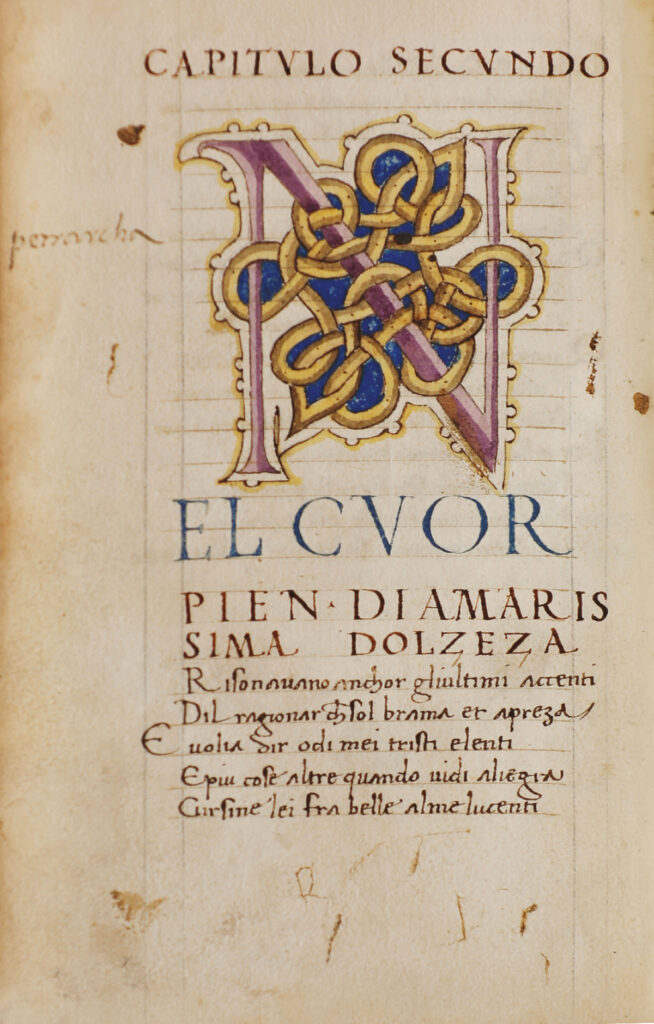 CAPITVLO SECVNDO
perrarcha
N
EL CVOR
PIEN · DI AMARIS
SIMA DOLZEZA
Risonauano anchor gliultimi accenti
Dil ragionar ch sol brama et apreza
E uolia dir o di mei tristi e lenti
E piu cose altre quando uidi aliegra
Girsine lei fra belle alme lucenti